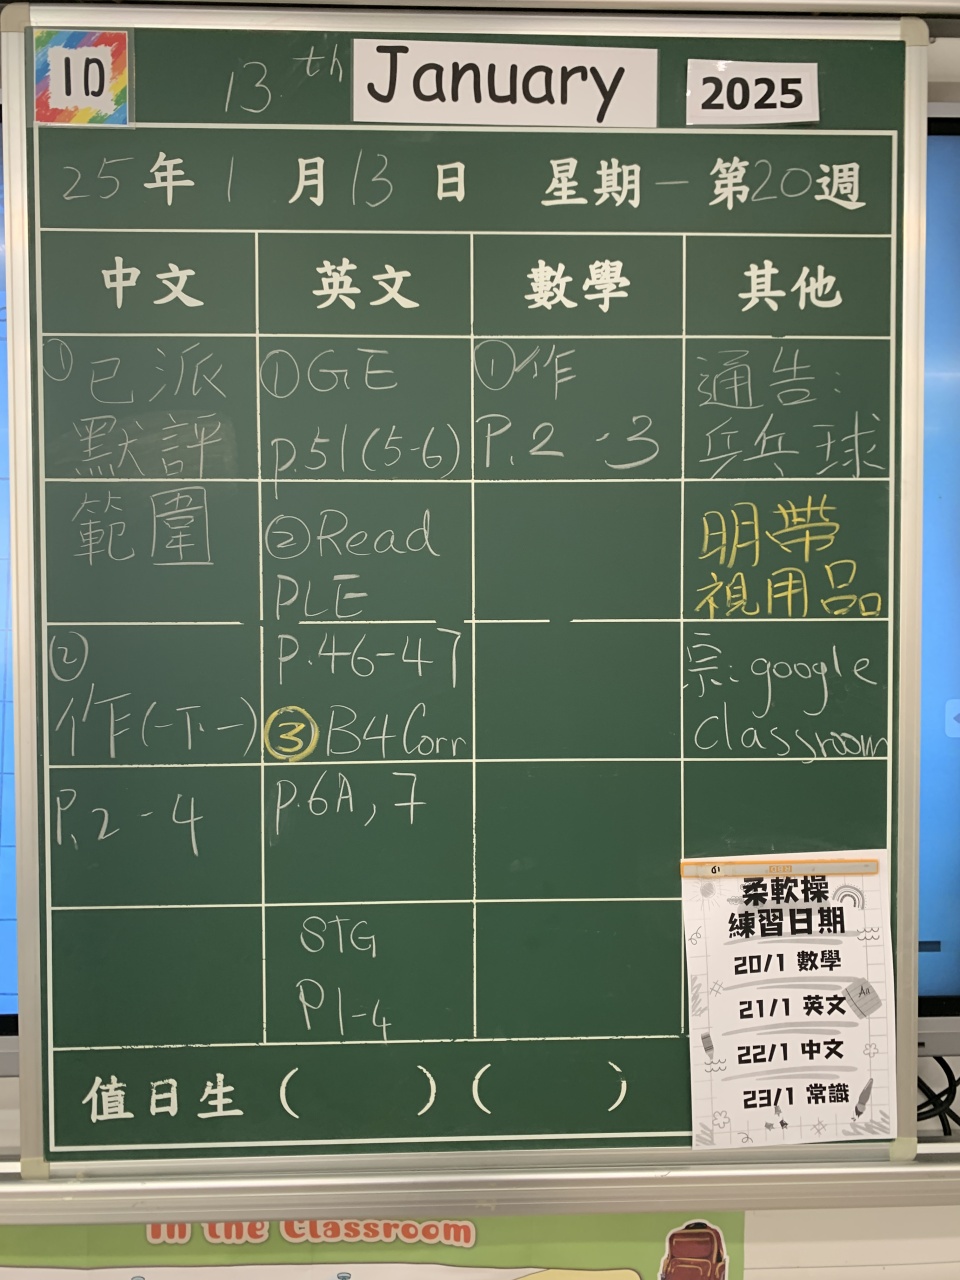 1D
13th January 2025
25年1月13日 星期一 第20週
中文 英文 數學 其他
①已派
默評
範圍
②
作(一下一)
P.2-4
①GE
p.51(5-6)
②Read
PLE
P.46-47
③B4Corr
p.6A,7
STG
P1-4
①作
P.2-3
通告:
乒乓球
明帶
視用品
宗:google
Classroom
柔軟操
練習日期
20/1 數學
21/1 英文
22/1 中文
23/1 常識
值日生( )( )
In the Classroom